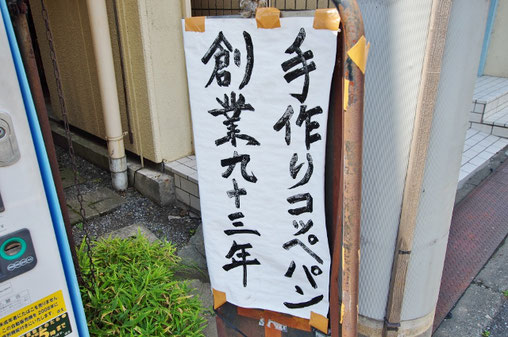 手作りコッペパン
創業九十三年